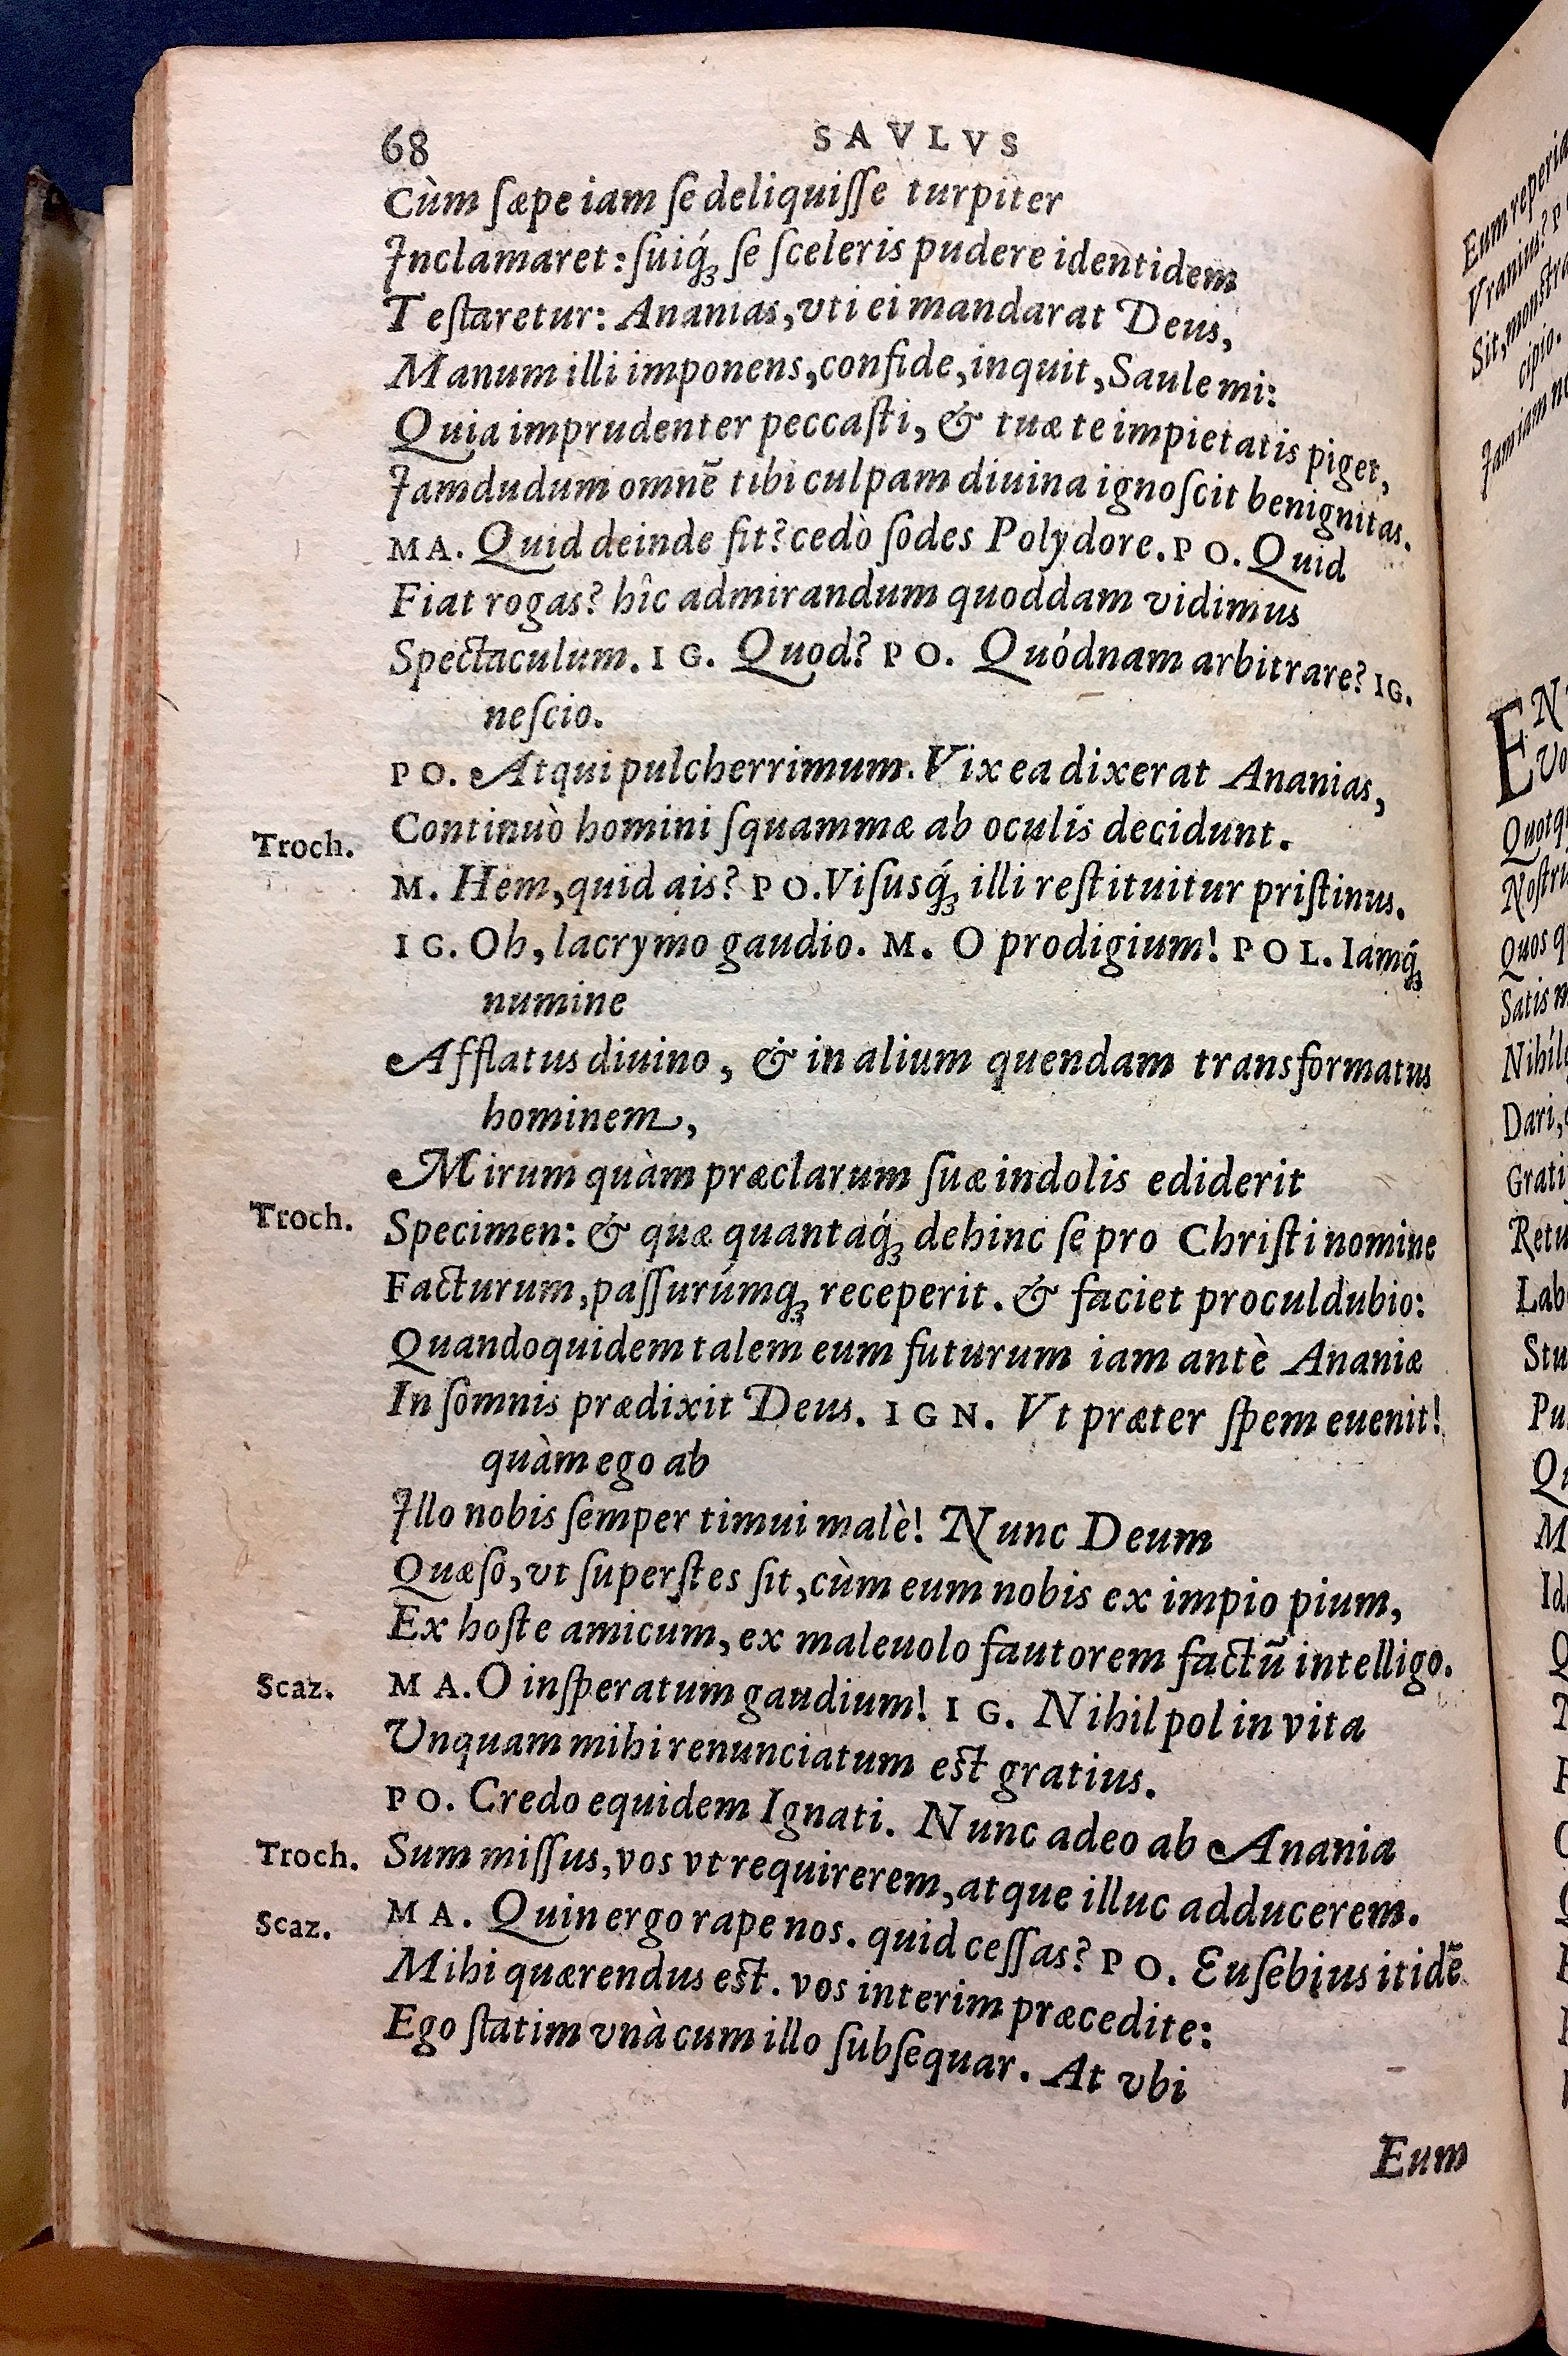 68 SAVLVS
Cùm sæpe iam se deliquisse turpiter
Inclamaret: suiq́ꝫ se sceleris pudere identidem
Testaretur: Ananias, vti ei mandarat Deus,
Manum illi imponens, confide, inquit, Saule mi:
Quia imprudenter peccasti, & tuæ te impietatis piget,
Iamdudum omnẽ tibi culpam diuina ignoscit benignitas.
MA. Quid deinde fit? cedò sodes Polydore. PO. Quid
Fiat rogas? hîc admirandum quoddam vidimus
Spectaculum. IG. Quod? PO. Quódnam arbitrare? IG.
nescio.
PO. Atqui pulcherrimum. Vix ea dixerat Ananias,
Troch. Continuò homini squammæ ab oculis decidunt.
M. Hem, quid ais? PO. Visusq́ꝫ illi restituitur pristinus.
IG. Oh, lacrymo gaudio. M. O prodigium! POL. Iamq́ꝫ
numine
Afflatus diuino, & in alium quendam transformatus
hominem,
Mirum quàm præclarum suæ indolis ediderit
Troch. Specimen: & quæ quantaq́ꝫ dehinc se pro Christi nomine
Facturum, passurúmqꝫ receperit. & faciet proculdubio:
Quandoquidem talem eum futurum iam antè Ananiæ
In somnis prædixit Deus. IGN. Vt præter spem euenit!
quàm ego ab
Illo nobis semper timui malè! Nunc Deum
Quæso, vt superstes sit, cùm eum nobis ex impio pium,
Ex hoste amicum, ex maleuolo fautorem factũ intelligo.
Scaz. MA. O insperatum gaudium! IG. Nihil pol in vita
Vnquam mihi renunciatum est gratius.
PO. Credo equidem Ignati. Nunc adeo ab Anania
Troch. Sum missus, vos vt requirerem, atque illuc adducerem.
Scaz. MA. Quin ergo rape nos. quid cessas? PO. Eusebius itidẽ
Mihi quærendus est. vos interim præcedite:
Ego statim vnà cum illo subsequar. At vbi
Eum
Eum reperia
Vranius? P
Sit, monstra
cipio.
Iam iam n
EN
Vo
Quotq
Nostru
Quos q
Satis m
Nihil
Dari,
Grati
Retu
Lab
Stu
Pu
Qu
M
Id